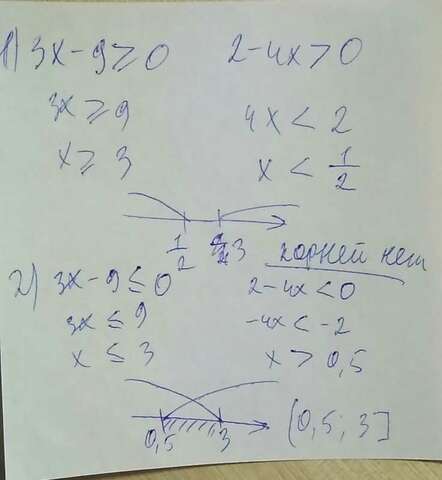 1) 3x-9≥0 2-4x>0
3x≥9 4x<2
x≥3 x<1/2
1/2 3 корней нет
2) 3x-9≤0 2-4x<0
3x≤9 -4x<-2
x≤3 x>0,5
0,5 3 (0,5; 3]